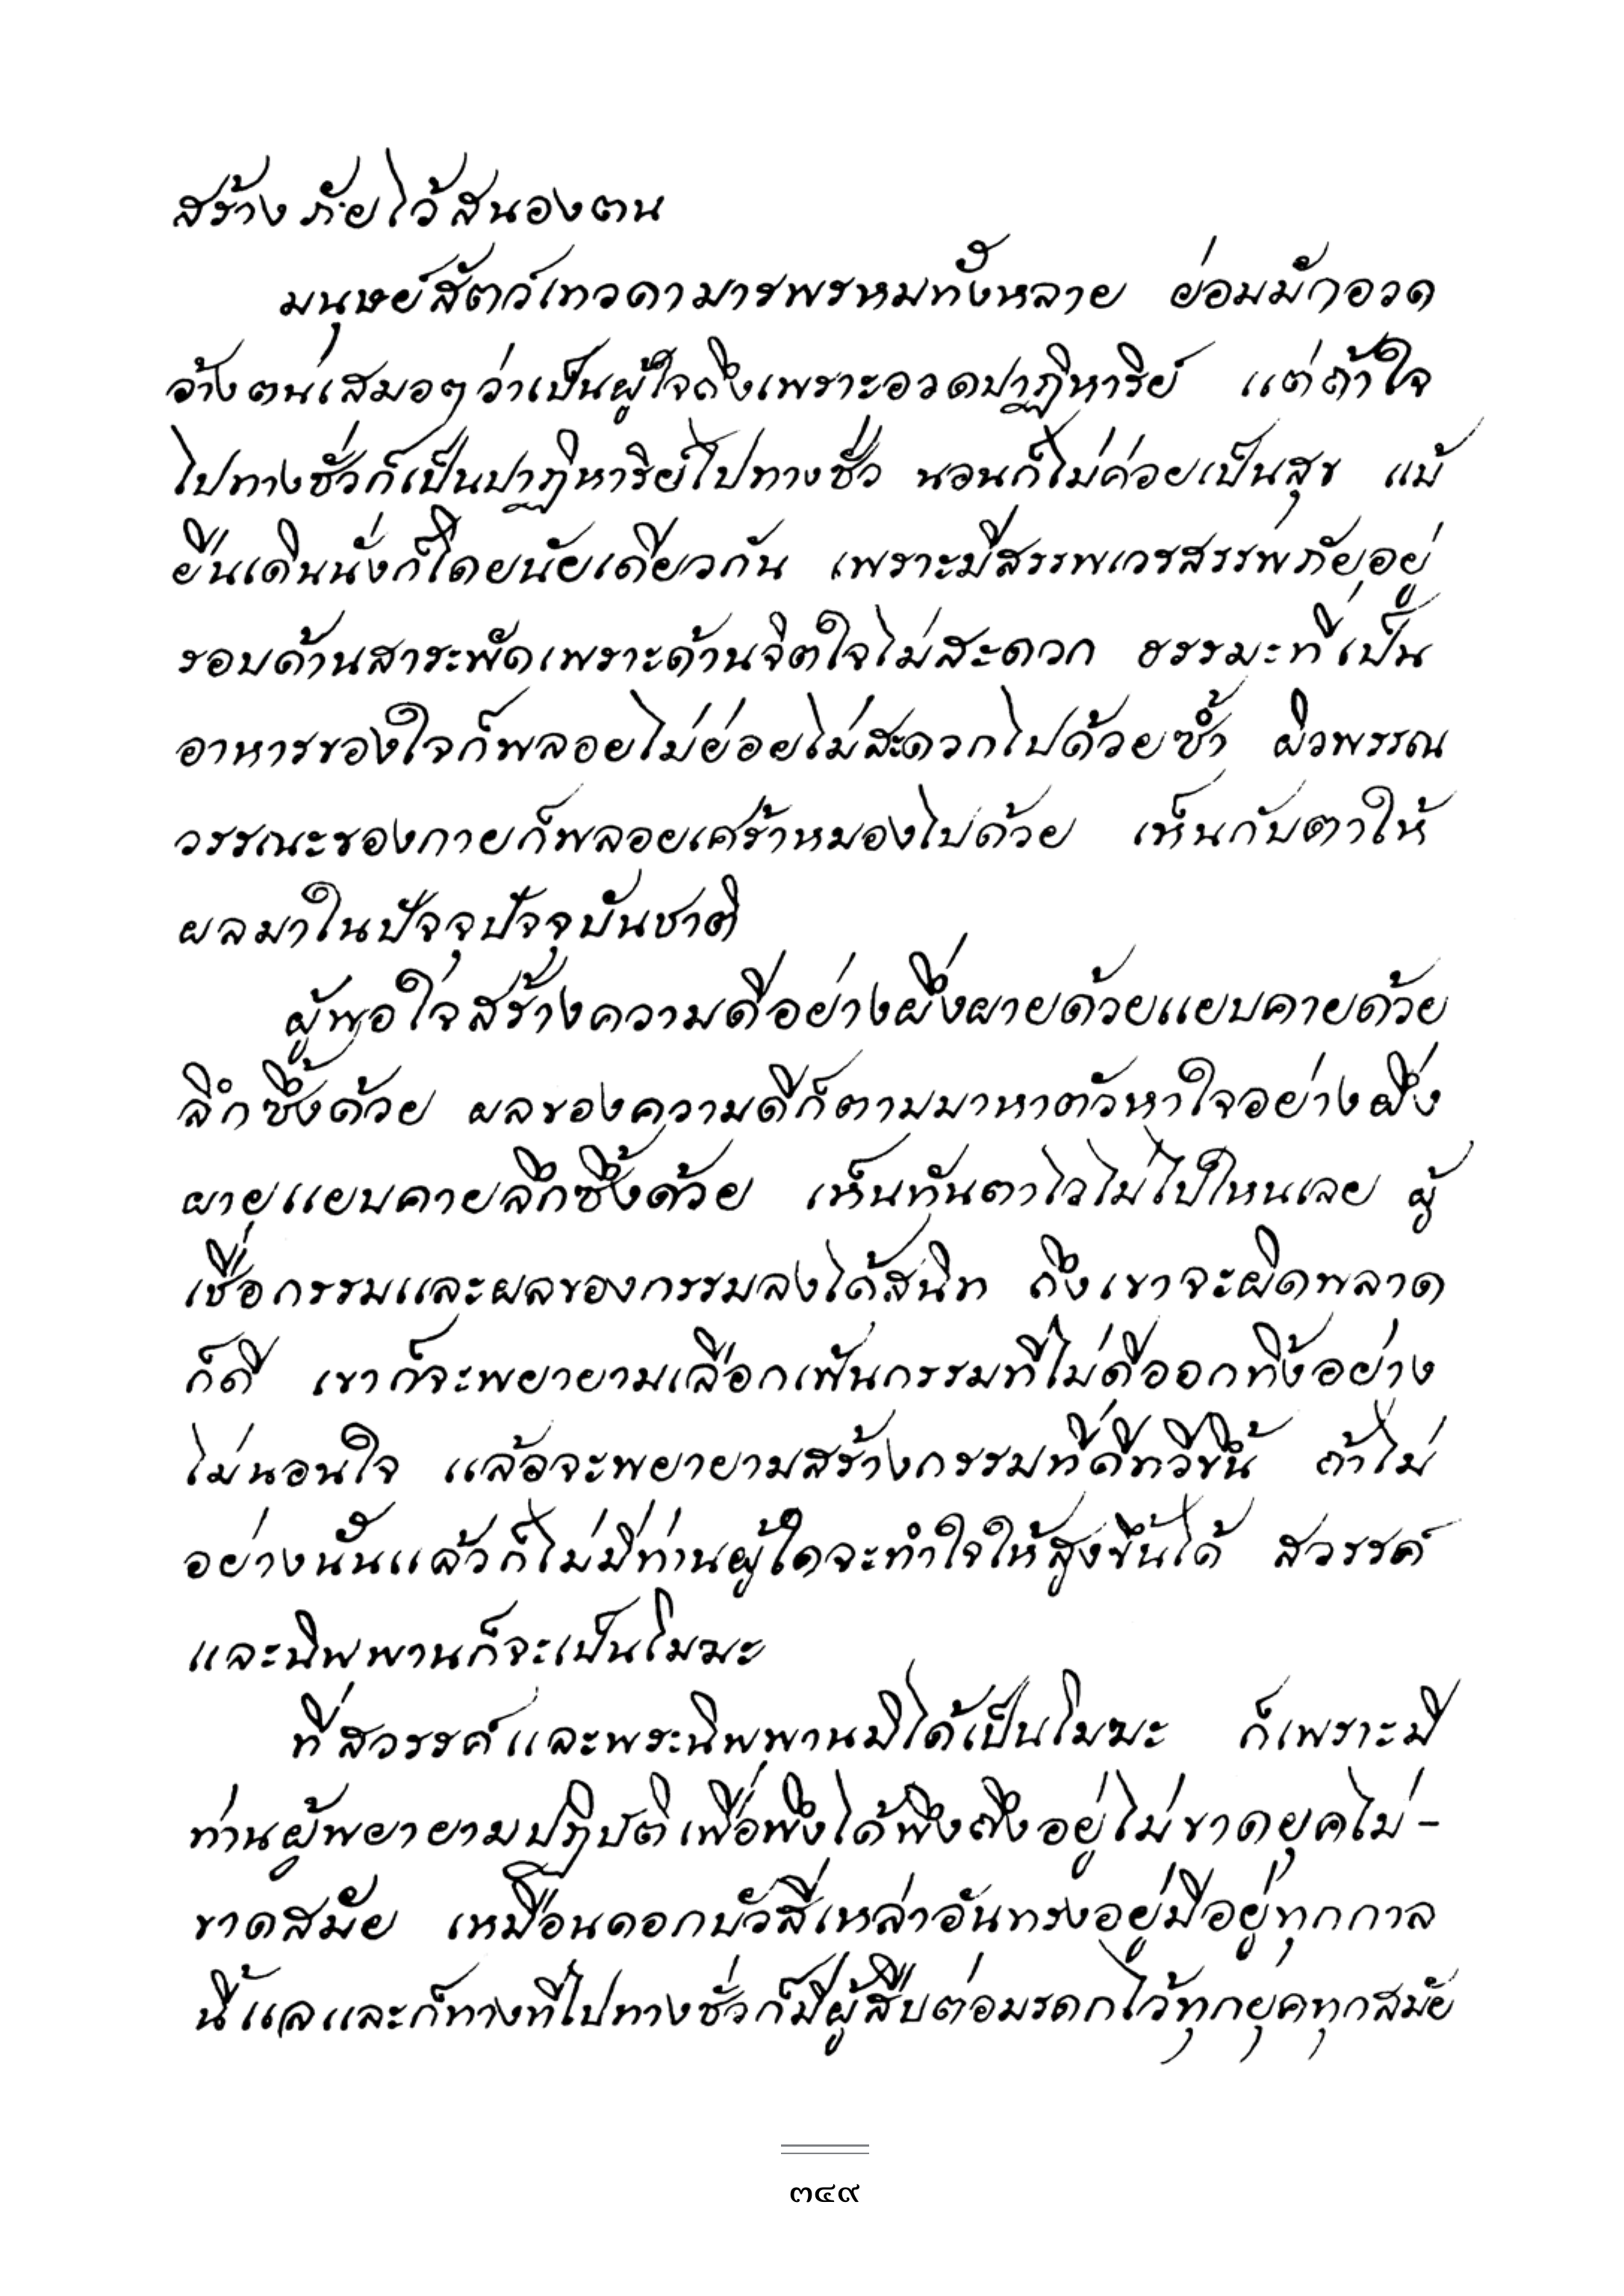 สร้างภัยไว้สนองตน
มนุษย์สัตว์เทวดามารพรหมทั้งหลาย ย่อมมักอวด
อ้างตนเสมอๆว่าเป็นผู้ใจถึงเพราะอวดปาฏิหาริย์ แต่ถ้าใจ
ไปทางชั่วก็เป็นปาฏิหาริย์ไปทางชั่ว นอนก็ไม่ค่อยเป็นสุข แม้
ยืนเดินนั่งก็โดยนัยเดียวกัน เพราะมีสรรพเวรสรรพภัยอยู่
รอบด้านสาระพัดเพราะด้านจิตใจไม่สะดวก ธรรมะที่เป็น
อาหารของใจก็พลอยไม่ย่อยไม่สะดวกไปด้วยซ้ำ ผิวพรรณ
วรรณะของกายก็พลอยเศร้าหมองไปด้วย เห็นกับตาให้
ผลมาในปัจจุปัจจุบันชาติ
ผู้พอใจสร้างความดีอย่างผึ่งผายด้วยแยบคายด้วย
ลึกซึ้งด้วย ผลของความดีก็ตามมาหาตัวหาใจอย่างผึ่ง
ผายแยบคายลึกซึ้งด้วย เห็นทันตาไวไม่ไปไหนเลย ผู้
เชื่อกรรมและผลของกรรมลงได้สนิท ถึงเขาจะผิดพลาด
ก็ดี เขาก็จะพยายามเลือกเฟ้นกรรมที่ไม่ดีออกทิ้งอย่าง
ไม่นอนใจ แล้วจะพยายามสร้างกรรมที่ดีทวีขึ้น ถ้าไม่
อย่างนั้นแล้วก็ไม่มีท่านผู้ใดจะทำใจให้สูงขึ้นได้ สวรรค์
และนิพพานก็จะเป็นโมฆะ
ที่สวรรค์และพระนิพพานมิได้เป็นโมฆะ ก็เพราะมี
ท่านผู้พยายามปฏิบัติเพื่อพึงได้พึงถึงอยู่ไม่ขาดยุคไม่-
ขาดสมัย เหมือนดอกบัวสี่เหล่าอันทรงอยู่มีอยู่ทุกกาล
นี้แลและก็ทางที่ไปทางชั่วก็มีผู้สืบต่อมรดกไว้ทุกยุคทุกสมัย
๓๔๙